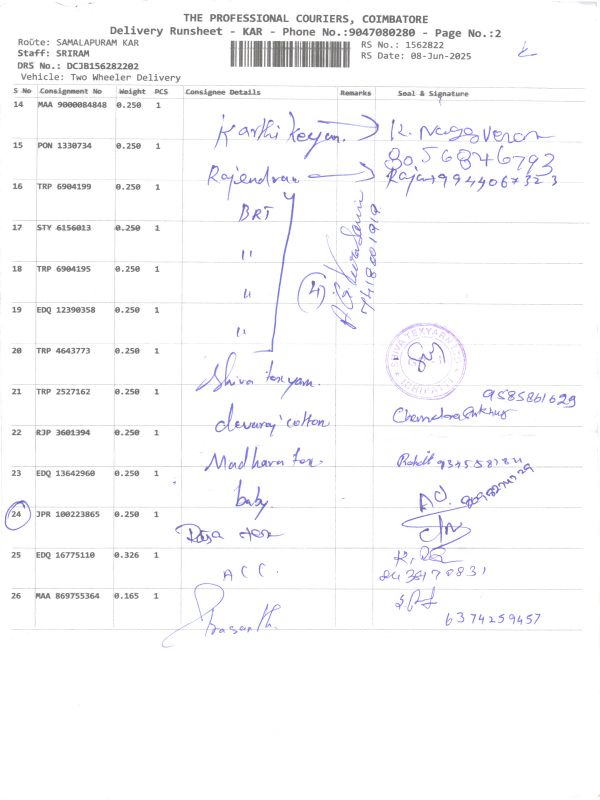 THE PROFESSIONAL COURIERS, COIMBATORE
Delivery Runsheet - KAR - Phone No.:9047080280 - Page No.:2
Route: SAMALAPURAM KAR
RS No.: 1562822
Staff: SRIRAM
RS Date: 08-Jun-2025
DRS No.: DCJB156282202
Vehicle: Two Wheeler Delivery
S No Consignment No Weight PCS Consignee Details Remarks Seal & Signature
14 MAA 9000084848 0.250 1
Karthikeyan. K. Nageveran
15 PON 1330734 0.250 1
80.56846793
Rajendran Raja 9944067323
16 TRP 6904199 0.250 1
BRT
17 STY 6156013 0.250 1
"
18 TRP 6904195 0.250 1
" 4
7418001919
19 EDQ 12390358 0.250 1
"
20 TRP 4643773 0.250 1
Shiva texyarn.
21 TRP 2527162 0.250 1
9585861629
devaraj cotton
22 RJP 3601394 0.250 1
Madhava tex.
23 EDQ 13642960 0.250 1
baby
24 JPR 100223865 0.250 1
Raja tex
25 EDQ 16775110 0.326 1
ACC.
26 MAA 869755364 0.165 1
Prasanth.
6374259457